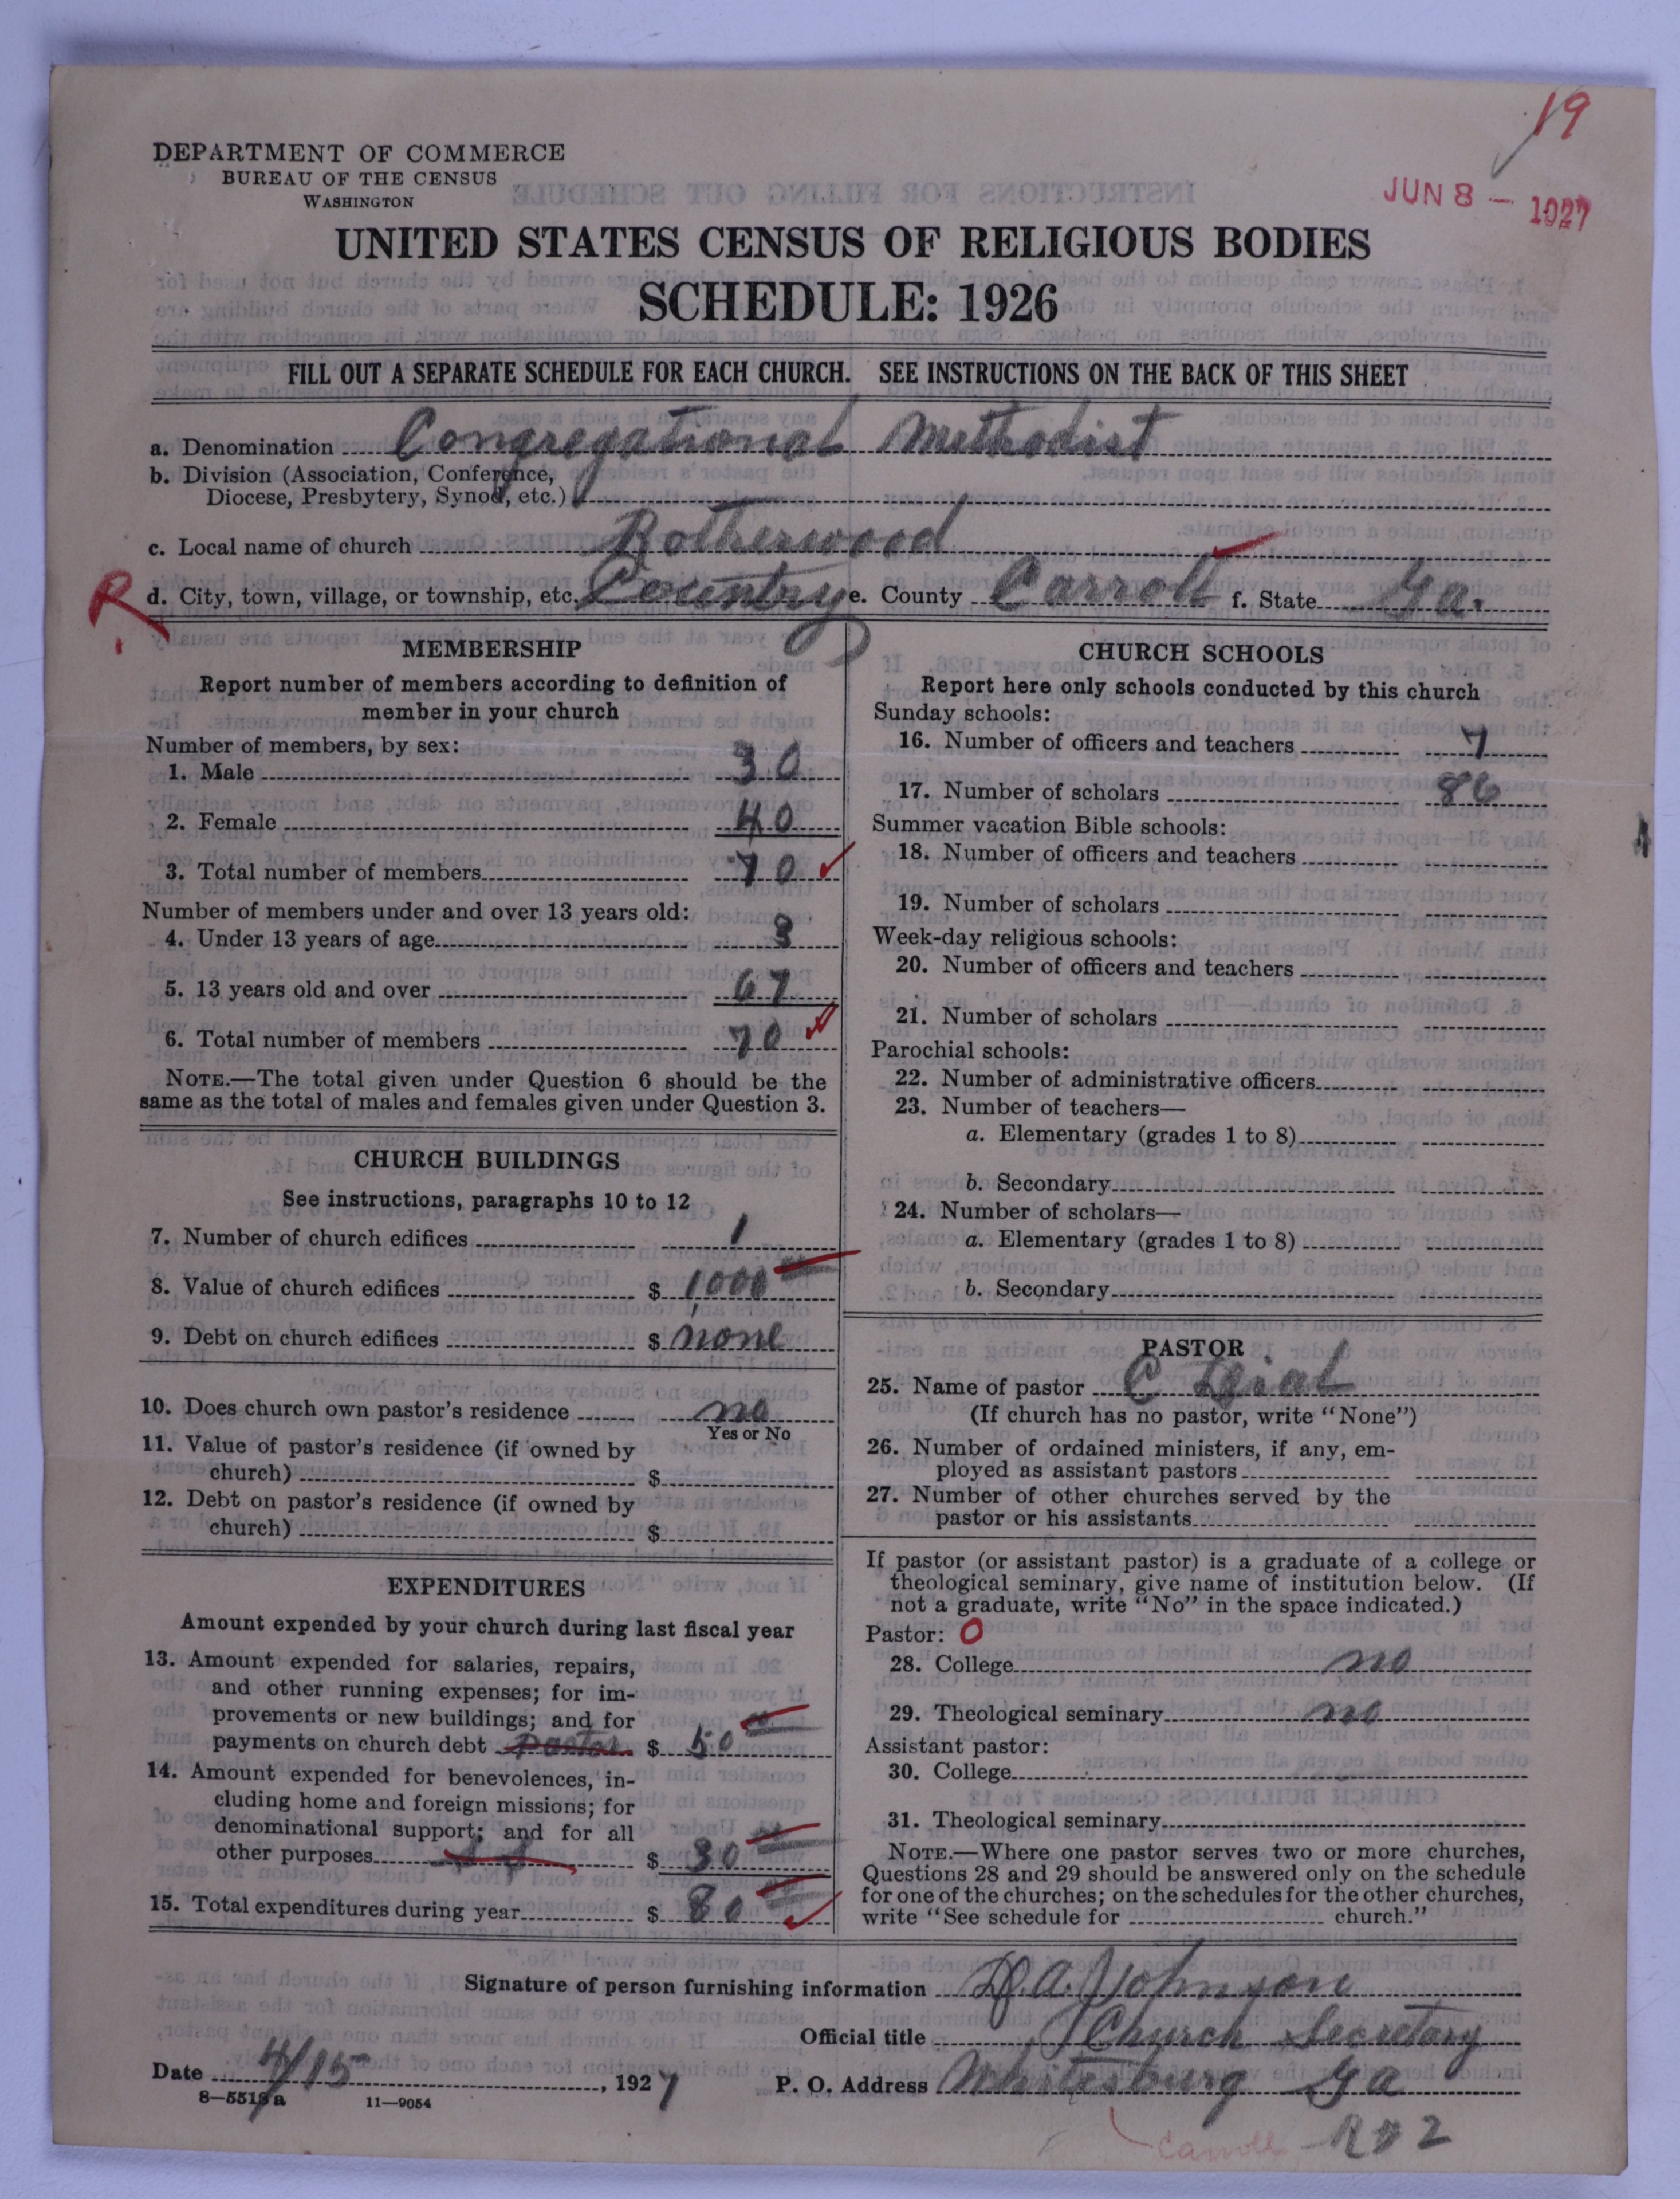 19
JUN 8 - 1927
DEPARTMENT OF COMMERCE
BUREAU OF THE CENSUS
WASHINGTON
UNITED STATES CENSUS OF RELIGIOUS BODIES
SCHEDULE: 1926
FILL OUT A SEPARATE SCHEDULE FOR EACH CHURCH. SEE INSTRUCTIONS ON THE BACK OF THIS SHEET
a. Denomination Congregational Methodist
b. Division (Association, Conference,
Diocese, Presbytery, Synod, etc.)
c. Local name of church Rotherwood
R d. City, town, village, or township, etc. Country e. County Carroll f. State Ga.
MEMBERSHIP
Report number of members according to definition of
member in your church
Number of members, by sex:
1. Male 30
2. Female 40
3. Total number of members 70
Number of members under and over 13 years old:
4. Under 13 years of age 3
5. 13 years old and over 67
6. Total number of members 70
NOTE.—The total given under Question 6 should be the
same as the total of males and females given under Question 3.
CHURCH BUILDINGS
See instructions, paragraphs 10 to 12
7. Number of church edifices 1
8. Value of church edifices $ 1,000
9. Debt on church edifices $ none
10. Does church own pastor's residence no
Yes or No
11. Value of pastor's residence (if owned by
church) $
12. Debt on pastor's residence (if owned by
church) $
EXPENDITURES
Amount expended by your church during last fiscal year
13. Amount expended for salaries, repairs,
and other running expenses; for im-
provements or new buildings; and for
payments on church debt Pastor $ 50
14. Amount expended for benevolences, in-
cluding home and foreign missions; for
denominational support; and for all
other purposes $ 30
15. Total expenditures during year $ 80
CHURCH SCHOOLS
Report here only schools conducted by this church
Sunday schools:
16. Number of officers and teachers 7
17. Number of scholars 86
Summer vacation Bible schools:
18. Number of officers and teachers
19. Number of scholars
Week-day religious schools:
20. Number of officers and teachers
21. Number of scholars
Parochial schools:
22. Number of administrative officers
23. Number of teachers—
a. Elementary (grades 1 to 8)
b. Secondary
24. Number of scholars—
a. Elementary (grades 1 to 8)
b. Secondary
PASTOR
25. Name of pastor C Dial
(If church has no pastor, write "None")
26. Number of ordained ministers, if any, em-
ployed as assistant pastors
27. Number of other churches served by the
pastor or his assistants
If pastor (or assistant pastor) is a graduate of a college or
theological seminary, give name of institution below. (If
not a graduate, write "No" in the space indicated.)
Pastor: O
28. College no
29. Theological seminary no
Assistant pastor:
30. College
31. Theological seminary
NOTE.—Where one pastor serves two or more churches,
Questions 28 and 29 should be answered only on the schedule
for one of the churches; on the schedules for the other churches,
write "See schedule for church."
Signature of person furnishing information D. A. Johnson
Official title Church Secretary
Date 4/15, 1927 P. O. Address Whitesburg Ga
8-5518a 11-9054
Carroll R # 2